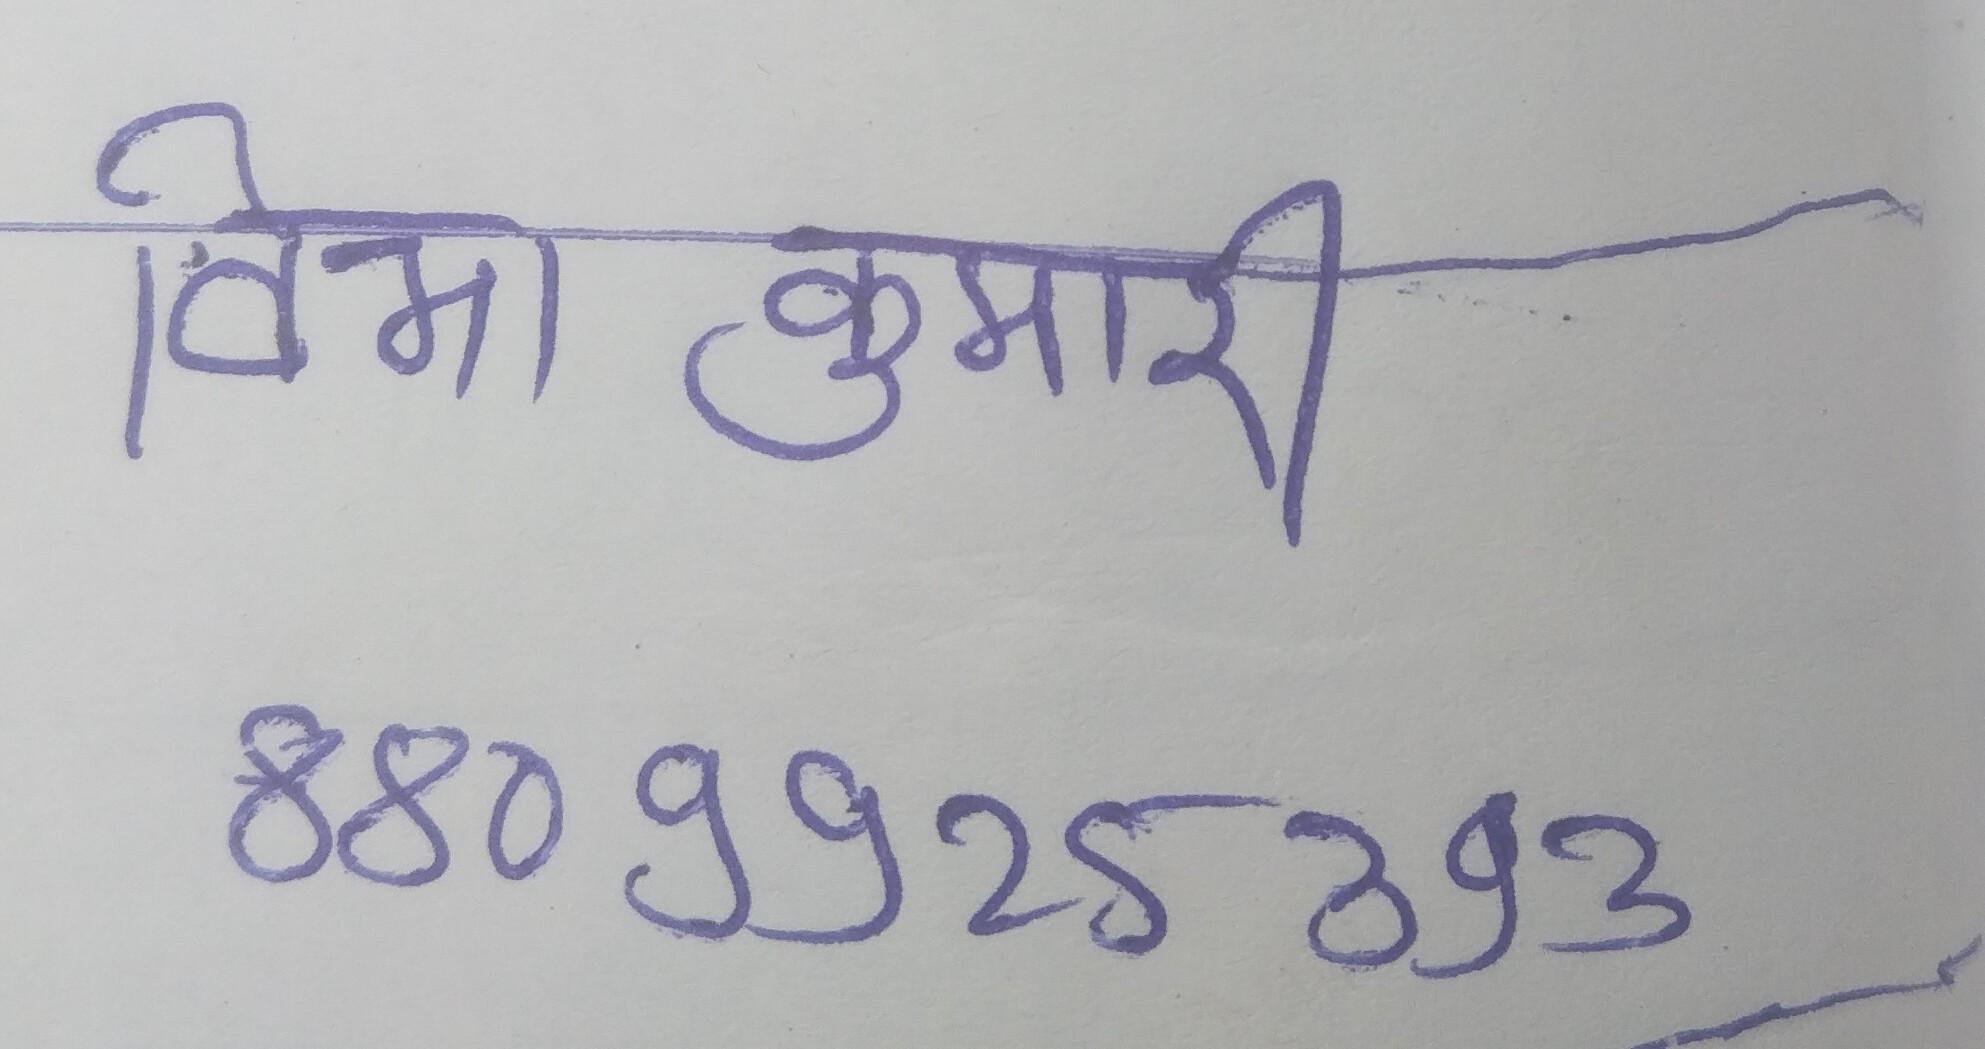 विभा कुमारी
8809925393